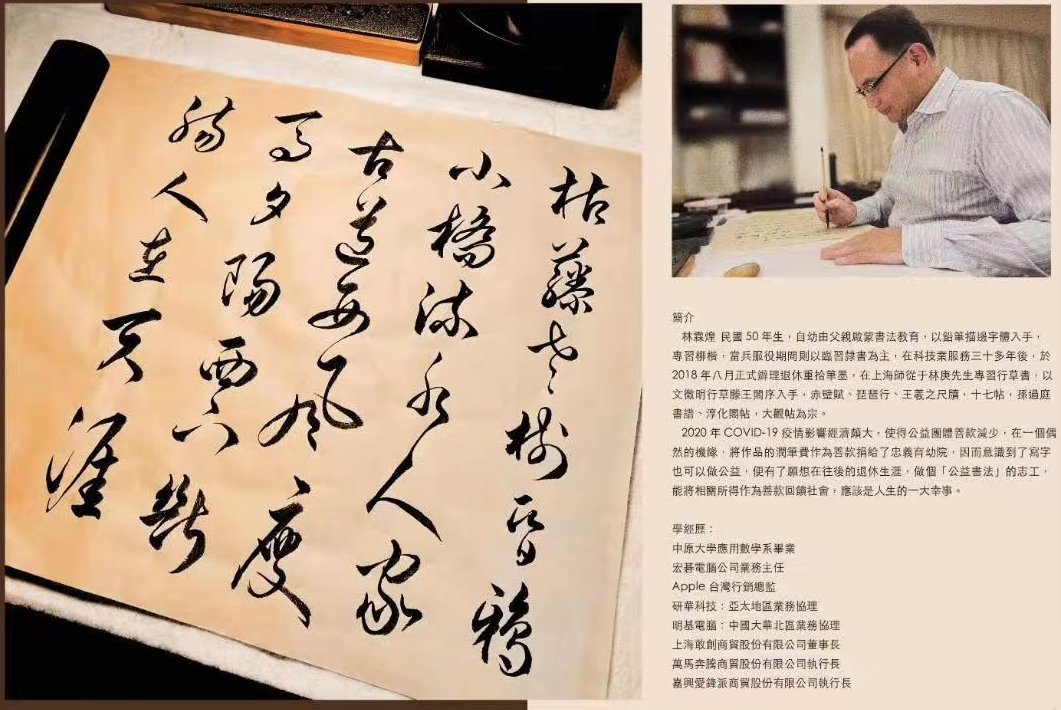 枯藤老樹昏鴉
小橋流水人家
古道西風瘦
馬夕陽西下斷
腸人在天涯
簡介
林霖煌 民國 50 年生，自幼由父親啟蒙書法教育，以鉛筆描邊字體入手，
專習柳楷，當兵服役期間則以臨習隸書為主，在科技業服務三十多年後，於
2018 年八月正式辦理退休重拾筆墨，在上海師從于林庚先生專習行草書，以
文徵明行草滕王閣序入手，赤壁賦、琵琶行、王羲之尺牘，十七帖，孫過庭
書譜、淳化閣帖，大觀帖為宗。
2020 年 COVID-19 疫情影響經濟頗大，使得公益團體善款減少，在一個偶
然的機緣，將作品的潤筆費作為善款捐給了忠義育幼院，因而意識到了寫字
也可以做公益，便有了願想在往後的退休生涯，做個「公益書法」的志工，
能將相關所得作為善款回饋社會，應該是人生的一大幸事。
學經歷：
中原大學應用數學系畢業
宏碁電腦公司業務主任
Apple 台灣行銷總監
研華科技：亞太地區業務協理
明基電腦：中國大華北區業務協理
上海敢創商貿股份有限公司董事長
萬馬奔騰商貿股份有限公司執行長
嘉興愛鋒派商貿股份有限公司執行長